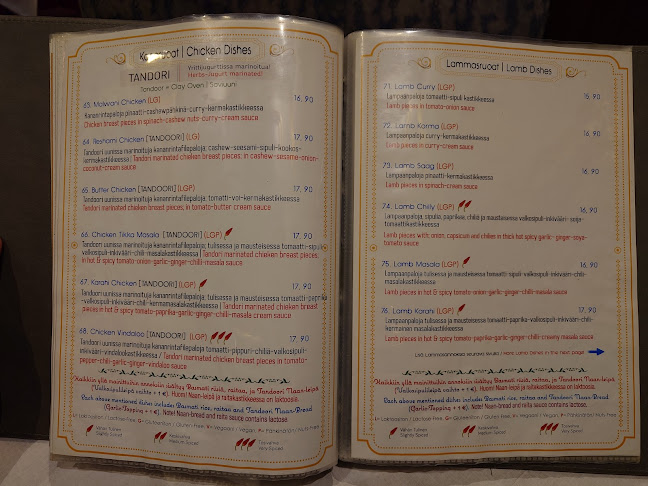 Kanaruoat | Chicken Dishes
TANDORI
Yrttijugurtissa marinoitua!
Herbs-Jogurt marinated!
Tandoor = Clay Oven | Saviuuni
63. Malwani Chicken (LG) 16, 90
Kananrintapaloja pinaatti-cashewpähkinä-curry-kermakastikkeessa
Chicken breast pieces in spinach-cashew nuts-curry-cream sauce
64. Reshami Chicken [TANDOORI] (LG) 17, 90
Tandoori uunissa marinoituja kananrintafilepaloja; cashew-seesami-sipuli-kookos-
kermakastikkeessa | Tandori marinated chicken breast pieces; in cashew-sesame-onion-
coconut-cream sauce
65. Butter Chicken [TANDOORI] (LGP) 17, 90
Tandoori uunissa marinoituja kananrintafilepaloja; tomatti-voi-kermakastikkeessa
Tandori marinated chicken breast pieces in tomato-butter cream sauce
66. Chicken Tikka Masala [TANDOORI] (LGP) 17, 90
Tandoori uunissa marinoituja kananrintafilepaloja; tulisessa ja mausteisessa tomaatti-sipuli
-valkosipuli-inkivääri-chili-kermakastikkeessa | Tandori marinated chicken breast pieces
in hot & spicy tomato-onion-garlic-ginger-chilli-masala sauce
67. Karahi Chicken [TANDOORI] (LGP) 17, 90
Tandoori uunissa marinoituja kananrintafilepaloja; tulisessa ja mausteisessa tomaatti-paprika
-valkosipuli-inkivääri-chili-kermamasalakastikkeessa | Tandori marinated chicken breast
pieces in hot & spicy tomato-paprika-garlic-ginger-chili-masala cream sauce
68. Chicken Vindaloo [TANDOORI] (LGP) 17, 90
Tandoori uunissa marinoituja kananrintafilepaloja tomaatti-pippuri-chiliä-valkosipuli-
inkivääri-vindalokastikkeessa | Tandori marinated chicken breast pieces in tomato-
pepper-chili-garlic-ginger-vindaloo sauce
Kaikkiin yllä mainittuihin annoksiin sisältyy Basmati riisiä, raitaa, ja Tandoori Naan-leipä
(Valkosipulileipä vaihto + 1 €). Huom! Naan-leipä ja raitakastikkeessa on laktoosia.
Each above mentioned dishes includes Basmati rice, raitaa and Tandoori Naan-Bread
(Garlic-Topping + 1 €). Note! Naan-bread and raita sauce contains lactose.
Vähän Tulinen
Slightly Spiced
Keskivahva
Medium Spiced
Tosivahva
Very Spiced
Lammasruoat | Lamb Dishes
71. Lamb Curry (LGP) 15, 90
Lampaanpaloja tomaatti-sipuli kastikkeessa
Lamb pieces in tomato-onion sauce
72. Lamb Korma (LGP) 16, 90
Lampaanpaloja curry-kermakastikkeessa
Lamb pieces in curry-cream sauce
73. Lamb Saag (LGP) 16, 90
Lampaanpaloja pinaatti-kermakastikkeessa
Lamb pieces in spinach-cream sauce
74. Lamb Chilly (LGP) 16, 90
Lampaanpaloja, sipulia, paprikaa, chiliä ja mausteisessa valkosipuli-inkivääri-soija-
tomaattikastikkeessa
Lamb pieces with; onion, capsicum and chilies in thick hot spicy garlic-ginger-soya-
tomato sauce
75. Lamb Masala (LGP) 16, 90
Lampaanpaloja tulisessa ja mausteisessa tomaatti-sipuli-valkosipuli-inkivääri-chili-
kastikkeessa
Lamb pieces in hot & spicy tomato-onion-garlic-ginger-chilli-masala sauce
76. Lamb Karahi (LGP) 16, 90
Lampaanpaloja tulisessa ja mausteisessa tomaatti-paprika-valkosipuli-inkivääri-chili-
kermainen masalakastikkeessa
Lamb pieces in hot & spicy tomato-paprika-garlic-ginger-chili-creamy masala sauce
Lisää Lammasannoksia seuraava sivulla | More Lamb Dishes in the next page
Kaikkiin yllä mainittuihin annoksiin sisältyy Basmati riisiä, raitaa, ja Tandoori Naan-leipä
(Valkosipulileipä vaihto + 1 €). Huom! Naan-leipä ja raitakastikkeessa on laktoosia.
Each above mentioned dishes includes Basmati rice, raitaa and Tandoori Naan-Bread
(Garlic-Topping + 1 €). Note! Naan-bread and raita sauce contains lactose.
Vähän Tulinen
Slightly Spiced
Keskivahva
Medium Spiced
Tosivahva
Very Spiced